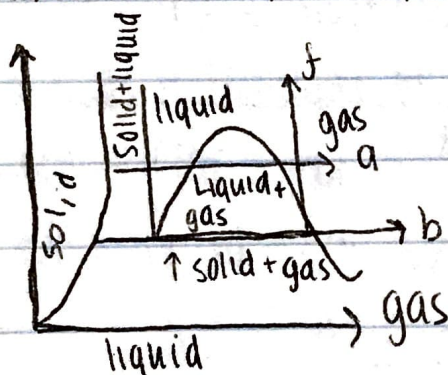 solid
solid+liquid
liquid
f
gas
a
Liquid+
gas
b
↑ solid+gas
gas
liquid